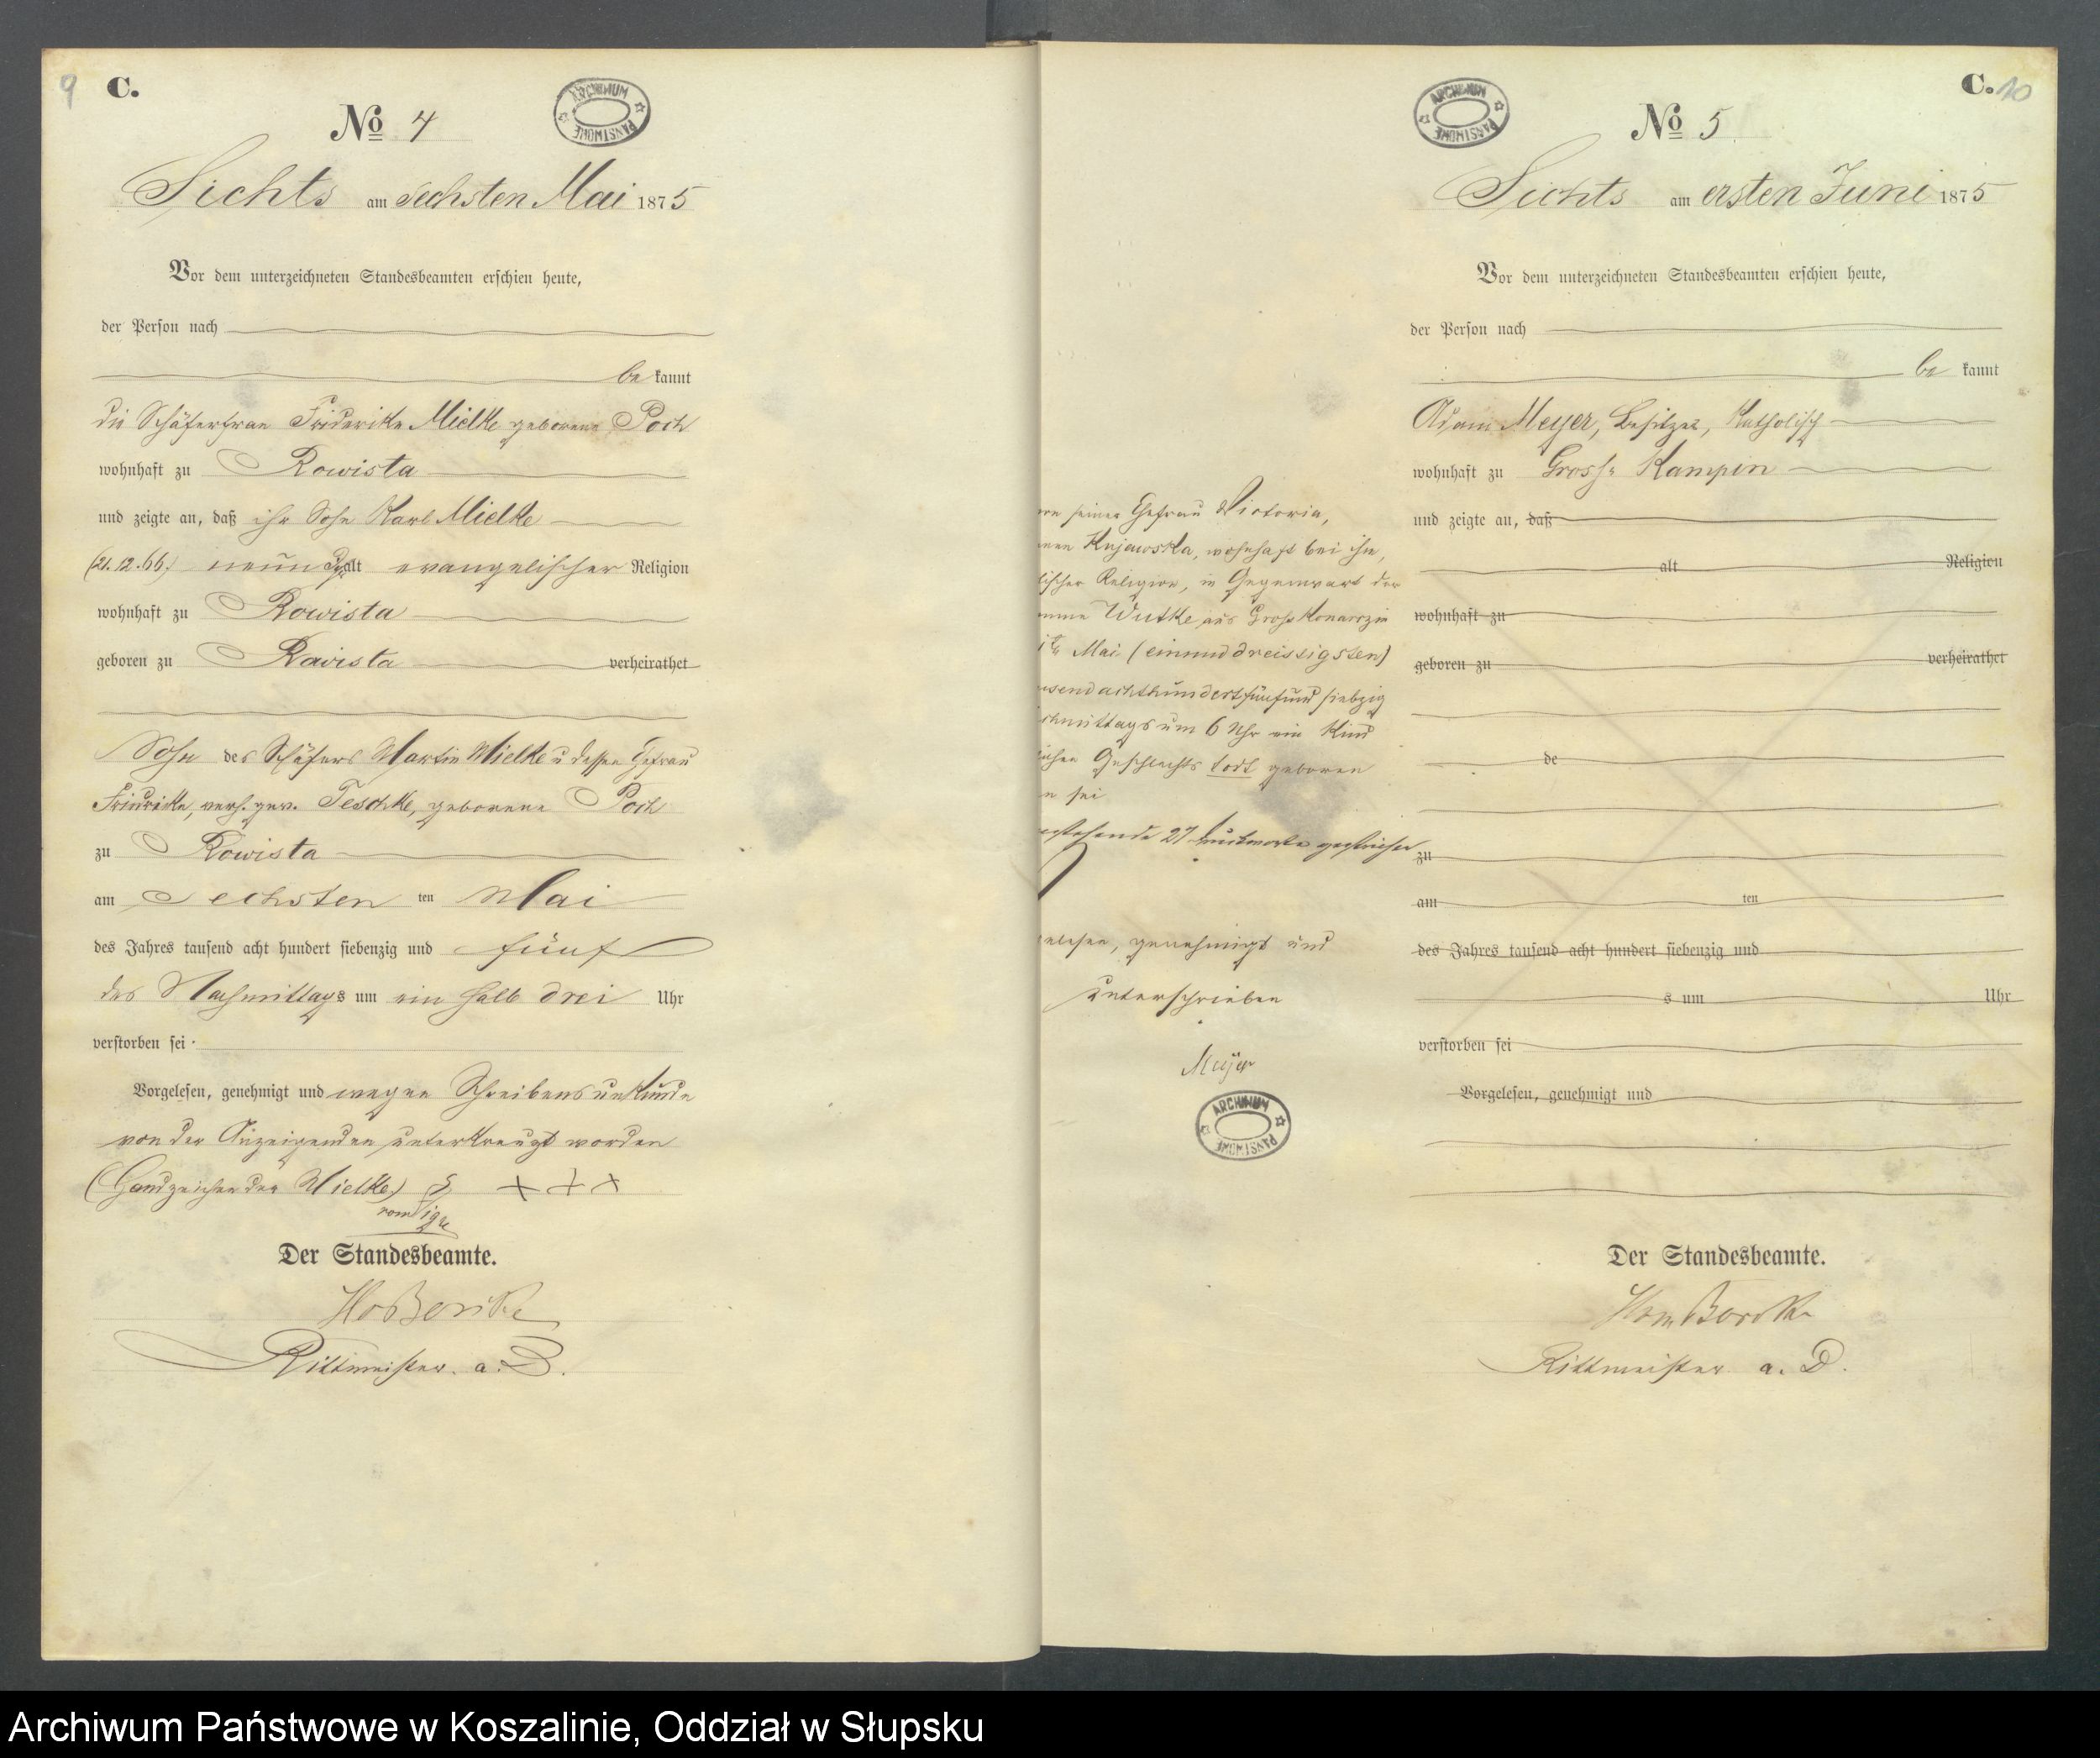 9 C.
No 4
ARCHIWUM PAŃSTWOWE
Sichts am sechsten Mai 1875
Vor dem unterzeichneten Standesbeamten erschien heute,
der Person nach
be kannt
die Schäferfrau Friderike Mielke geborene Poch
wohnhaft zu Rowista
und zeigte an, daß ihr Sohn Karl Mielke
(21.12.66.) neun alt evangelischer Religion
wohnhaft zu Rowista
geboren zu Rowista verheirathet
Sohn des Schäfers Martin Mielke u dessen Ehefrau
Friderike, verh. gew. Teschke, geborene Poch
zu Rowista
am Sechsten ten Mai
des Jahres tausend acht hundert siebenzig und fünf
des Nachmittags um ein halb drei Uhr
verstorben sei
Vorgelesen, genehmigt und wegen Schreibensunkunde
von der Anzeigenden unterkreuzt worden
(Handzeichen der Mielke) + + +
Der Standesbeamte.
Rittmeister a. D.
C. 10
No 5
ARCHIWUM PAŃSTWOWE
Sichts am ersten Juni 1875
Vor dem unterzeichneten Standesbeamten erschien heute,
der Person nach
be kannt
Adam Meyer, Besitzer, Katholisch
wohnhaft zu Gross Kampin
und zeigte an, daß
alt Religion
wohnhaft zu
geboren zu verheirathet
de
zu
am ten
des Jahres tausend acht hundert siebenzig und
s um Uhr
verstorben sei
Vorgelesen, genehmigt und
seiner Ehefrau Victoria,
Kujawska, wohnhaft bei ihm,
lischer Religion, in Gegenwart der
Wutke aus Gross Konarczin
Mai (einunddreissigsten)
usendachthundertfünfundsiebzig
chmittags um 6 Uhr ein Kind
lichen Geschlechts todt geboren
n sei
estehende 27 Druckworte gestrichen
elesen, genehmigt und
unterschrieben
Meyer
ARCHIWUM PAŃSTWOWE
Der Standesbeamte.
Rittmeister a. D.
Archiwum Państwowe w Koszalinie, Oddział w Słupsku